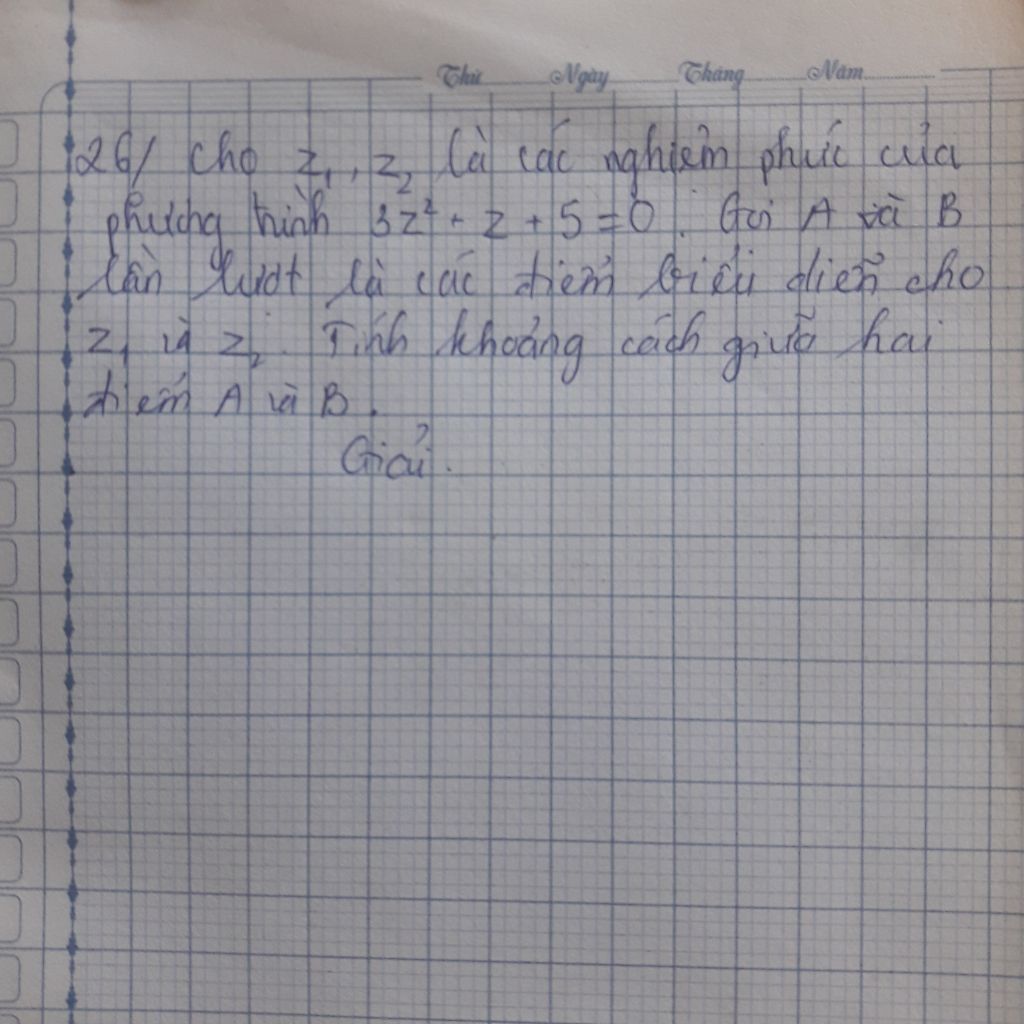 Thứ Ngày Tháng Năm
26/ Cho z₁, z₂ là các nghiệm phức của
phương trình 3z² - z + 5 = 0. Gọi A và B
lần lượt là các điểm biểu diễn cho
z₁ và z₂. Tính khoảng cách giữa hai
điểm A và B.
Giải.